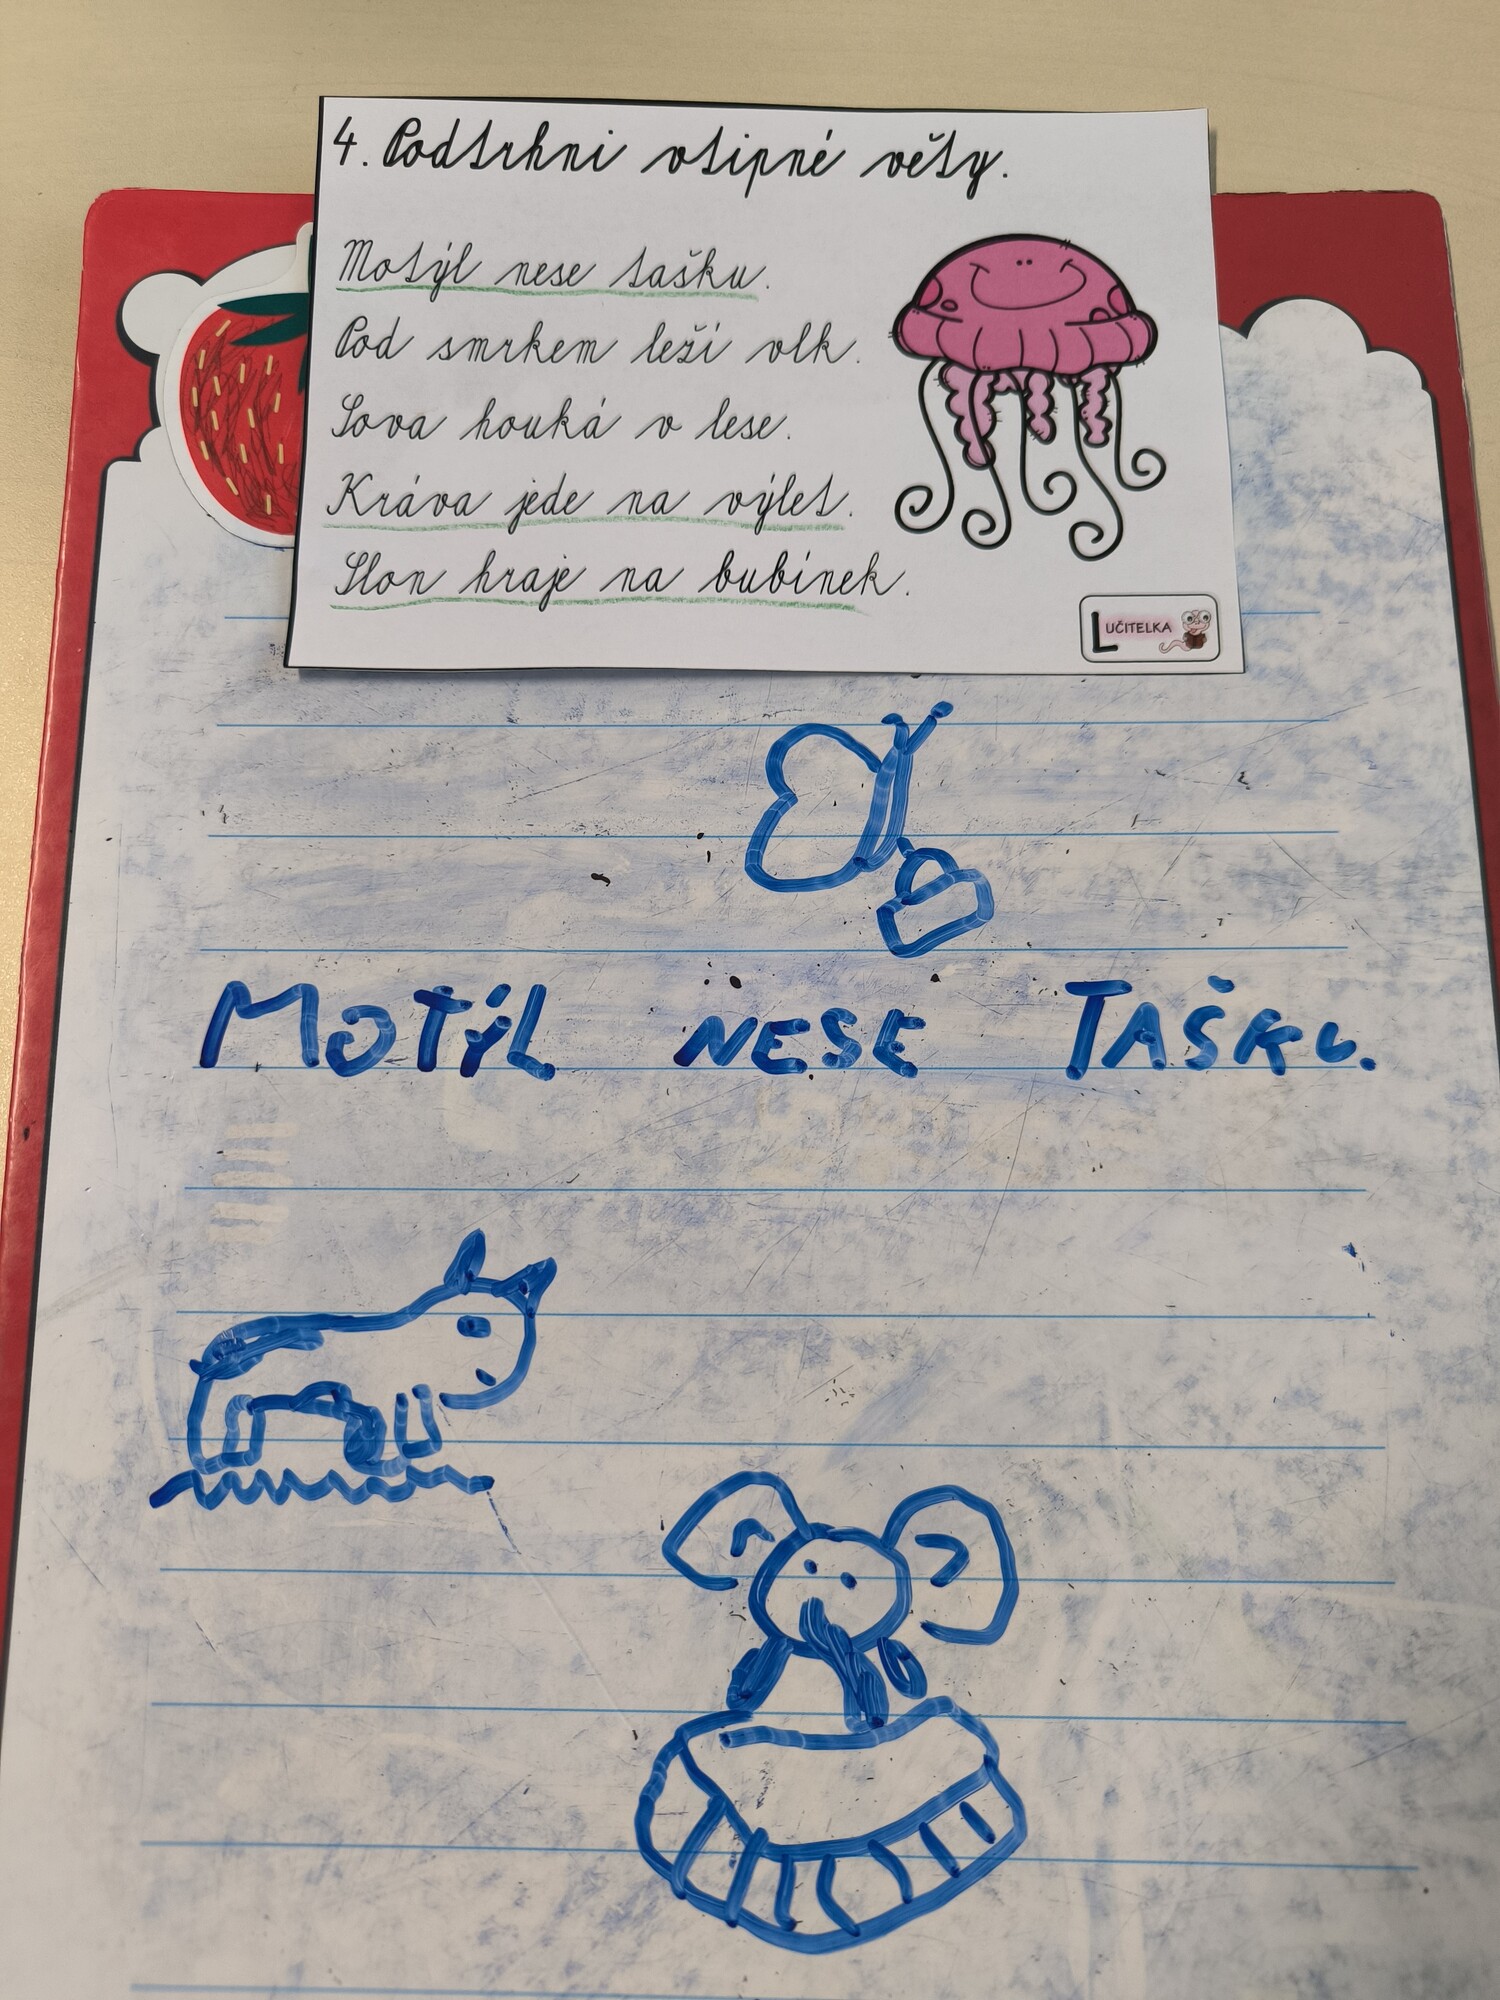 4. Podtrhni vtipné věty.
Motýl nese tašku.
Pod smrkem leží vlk.
Sova houká v lese.
Kráva jede na výlet.
Slon hraje na bubínek.
LUČITELKA
MOTÝL NESE TAŠKU.